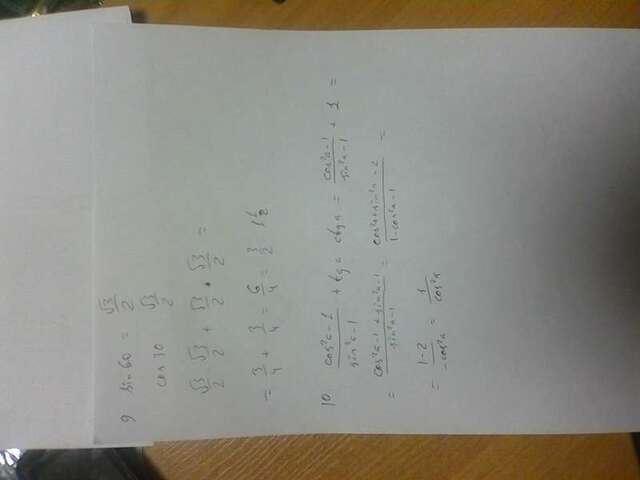 9 sin 60 = √3/2
cos 30 √3/2
√3/2 √3/2 + √3/2 · √3/2 =
= 3/4 + 3/4 = 6/4 = 3/2 1 1/2
10 (cos²α - 1)/(sin²α - 1) + tgα ctgα = (cos²α - 1)/(sin²α - 1) + 1 =
= (cos²α - 1 + sin²α - 1)/(sin²α - 1) = (cos²α + sin²α - 2)/(1 - cos²α - 1) =
= (1 - 2)/(-cos²α) = 1/(cos²α)